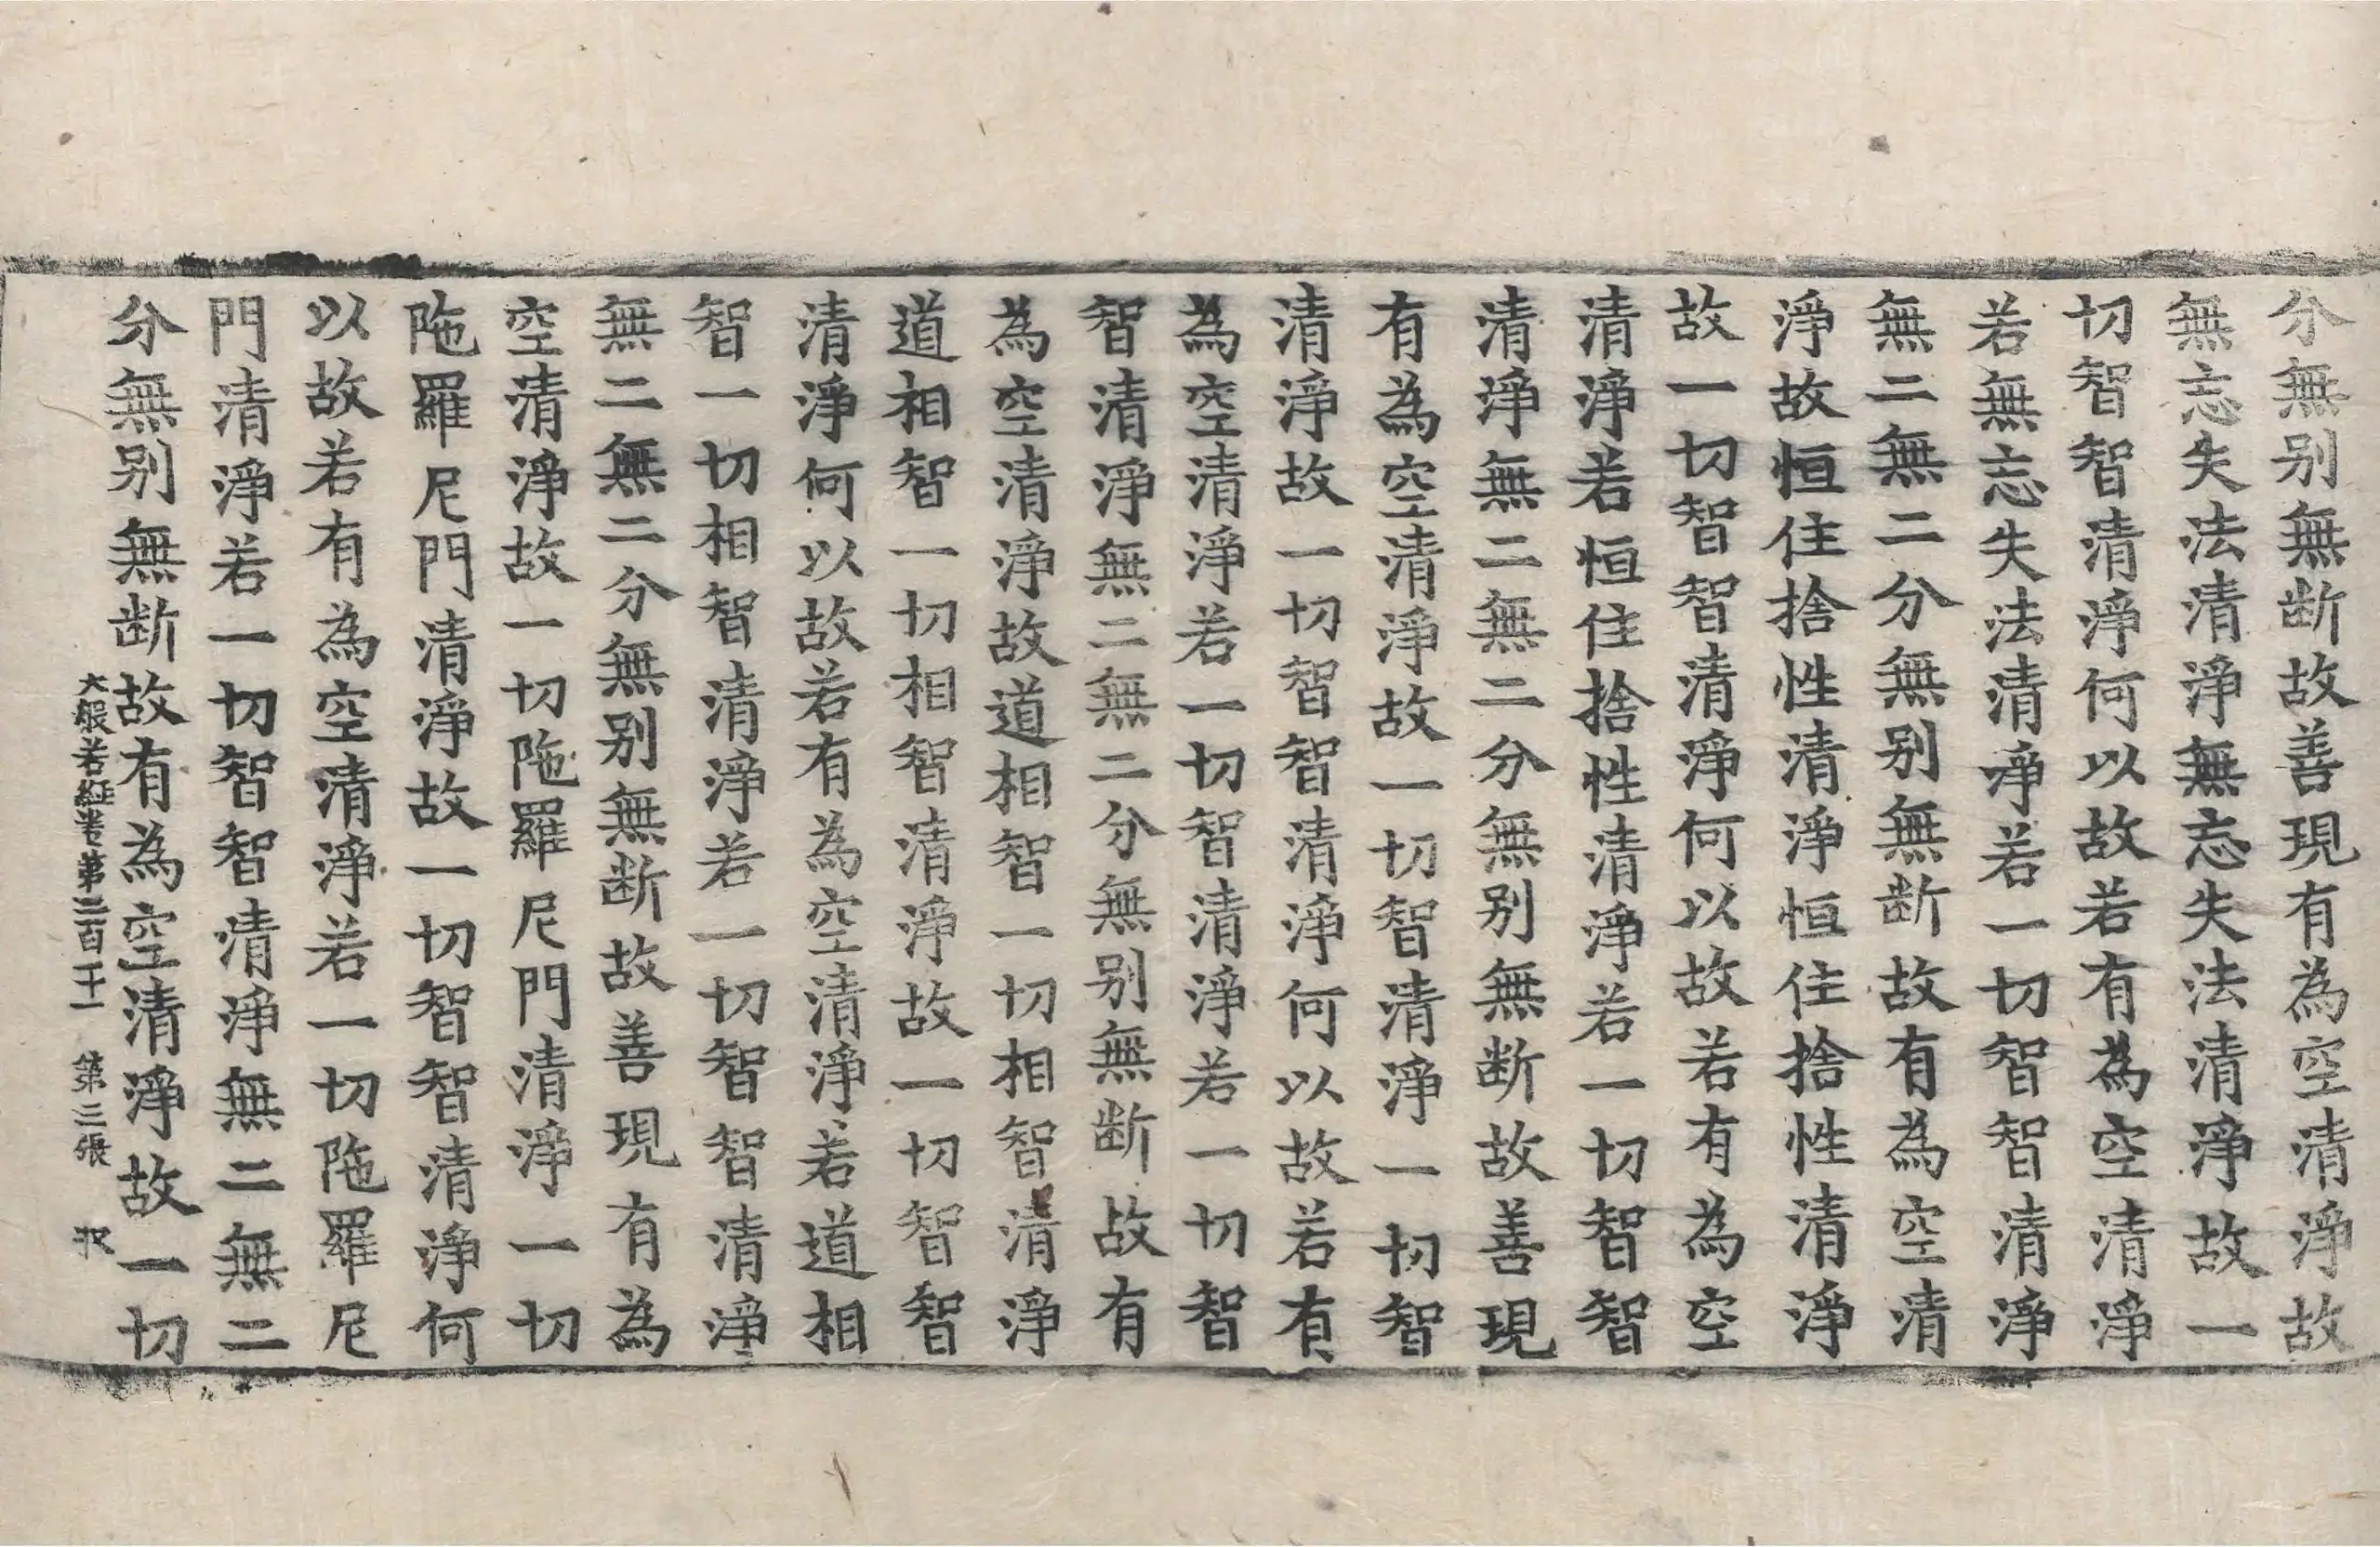 分無別無断故善現有為空清淨故
無忘失法清淨無忘失法清淨故一
切智智清淨何以故若有為空清淨
若無忘失法清淨若一切智智清淨
無二無二分無別無断故有為空清
淨故恒住捨性清淨恒住捨性清淨
故一切智智清淨何以故若有為空
清淨若恒住捨性清淨若一切智智
清淨無二無二分無別無断故善現
有為空清淨故一切智清淨一切智
清淨故一切智智清淨何以故若有
為空清淨若一切智清淨若一切智
智清淨無二無二分無別無断故有
為空清淨故道相智一切相智清淨
道相智一切相智清淨故一切智智
清淨何以故若有為空清淨若道相
智一切相智清淨若一切智智清淨
無二無二分無別無断故善現有為
空清淨故一切陁羅尼門清淨一切
陁羅尼門清淨故一切智智清淨何
以故若有為空清淨若一切陁羅尼
門清淨若一切智智清淨無二無二
分無別無断故有為空清淨故一切
大般若経卷第二百一十一 第三張 收